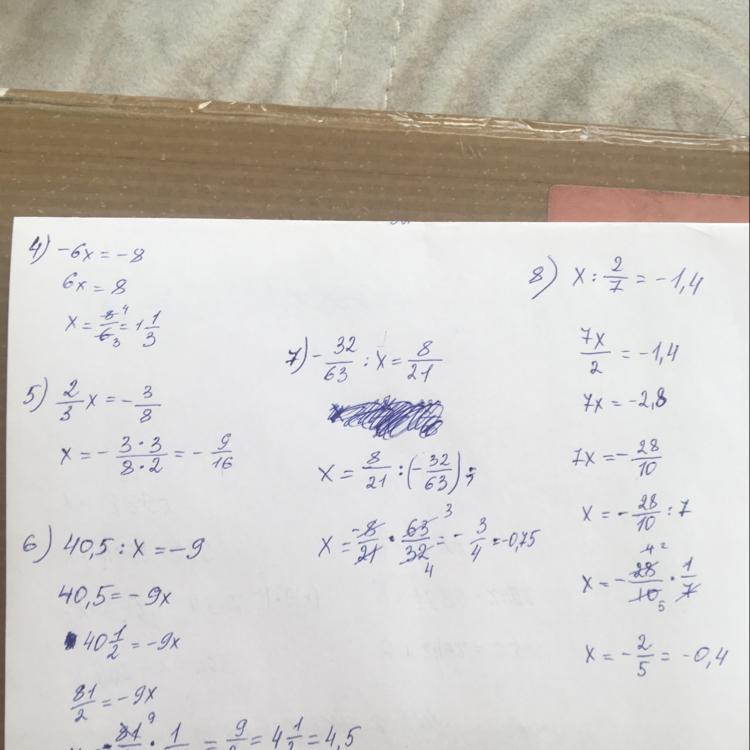 4) -6x = -8
6x = 8
x = 8/6 4 3 = 1 1/3
5) 2/3 x = - 3/8
x = - 3·3/8·2 = - 9/16
6) 40,5 : x = -9
40,5 = -9x
40 1/2 = -9x
81/2 = -9x
81 9 · 1 = 9 = 4 1 = 4,5
7) - 32/63 : x = 8/21
x = 8/21 : (- 32/63) ;
x = -8/21 · 63/32 3 4 = - 3/4 = -0,75
8) x : 2/7 = -1,4
7x/2 = -1,4
7x = -2,8
7x = - 28/10
x = - 28/10 : 7
x = - 28/10 4 2 5 · 1/7
x = - 2/5 = -0,4